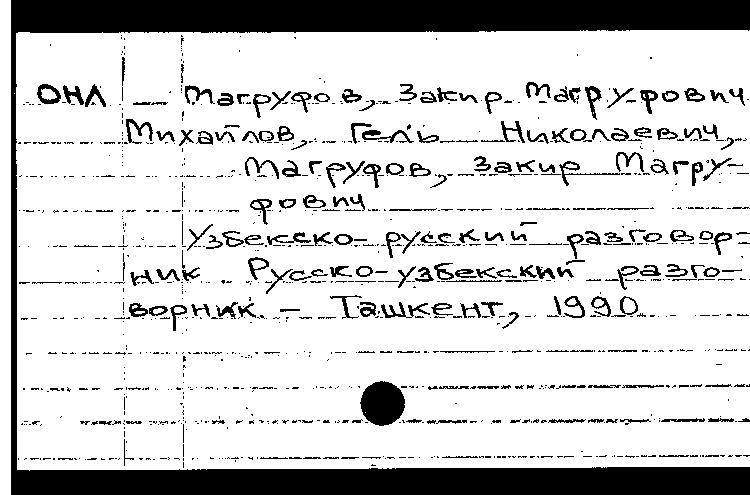 ОНЛ — Магруфов, Закир Магруфович
Михайлов, Гель Николаевич,
Магруфов, Закир Магру-
фович
Узбекско-русский разговор-
ник. Русско-узбекский разго-
ворник. – Ташкент, 1990